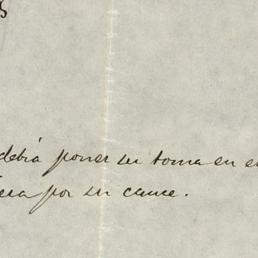 debia poner su toma en e
por su cauce.